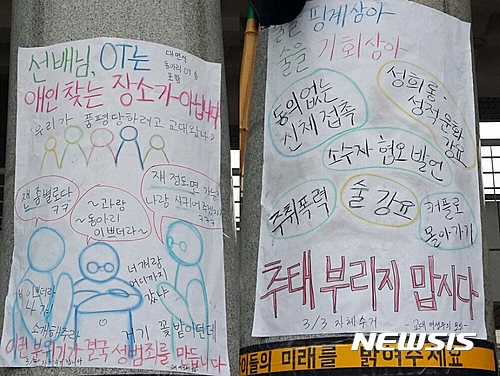 선배님, OT는
대면식
동아리 OT 등
포함
애인 찾는 장소가 아닙니다
우리가 품평당하려고 교대왔나?
걘 좀별로다
ㅋㅋ
~과랑
~동아리
이쁘더라~
쟤 정도면 가능
나랑 사귀어
ㅋㅋㅋ
걔 이쁘더라
소개해줘라
너 걔랑
어디까지
갔냐
거기 꽃밭이던데
이런 분위기가 결국 성범죄를 만듭니다
술을 핑계삼아
술을 기회삼아
동의없는
신체접촉
성희롱·
성적 문란
강요
소수자 혐오 발언
주취폭력
술 강요
커플로
몰아가기
추태 부리지 맙시다
3/3 자체수거
NEWSIS
이들의 미래를 밝혀주세요